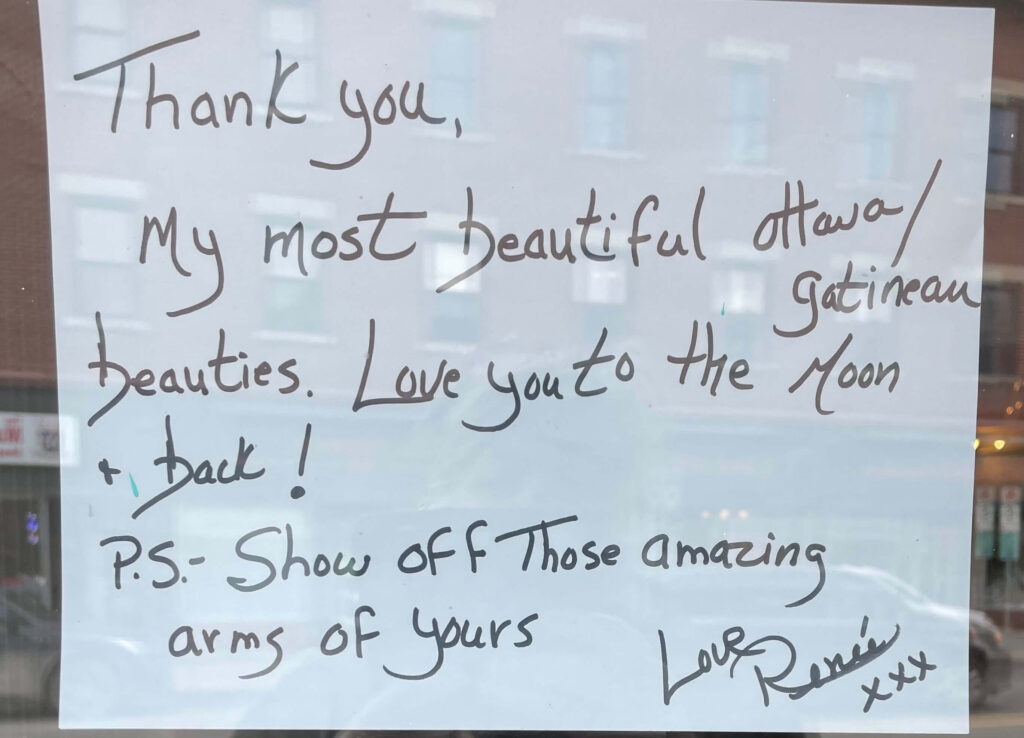 Thank you,
My most beautiful Ottawa/
gatineau
beauties. Love you to the Moon
+ back!
P.S.- Show off Those amazing
arms of yours
Love Renée
xxx